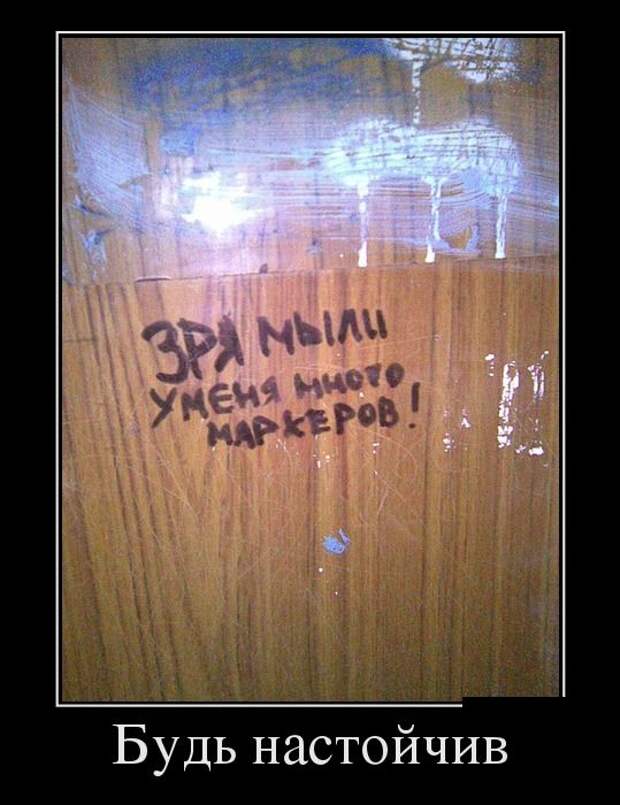 ЗРЯ МЫЛИ
У МЕНЯ МНОГО
МАРКЕРОВ!
Будь настойчив